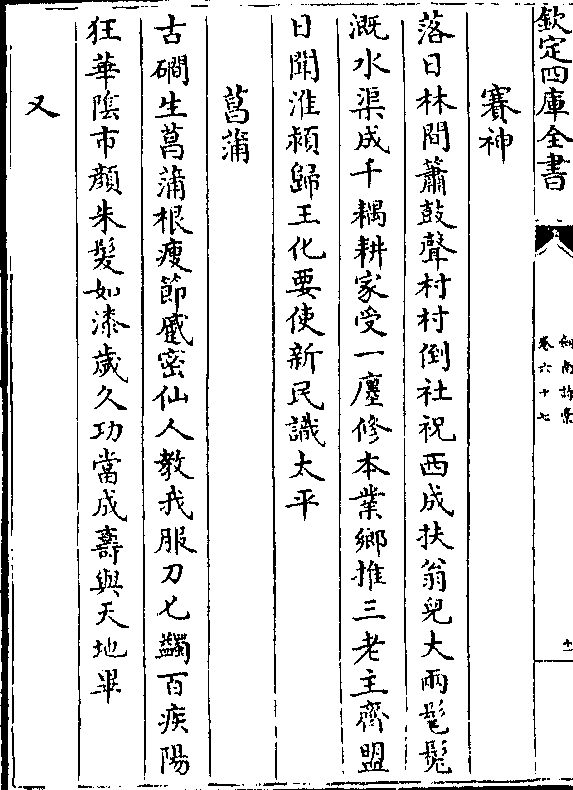 欽定四庫全書
劍南詩稾
卷六十七
十二
賽神
落日林間簫鼓聲村村倒社祝西成扶翁兒大兩髦髧
溉水渠成千耦耕家受一廛修本業鄉推三老主齊盟
日聞淮頴歸王化要使新民識太平
菖蒲
古磵生菖蒲根瘦節蹙密仙人教我服刀匕蠲百疾陽
狂華隂市顔朱髮如漆歲久功當成壽與天地畢
又